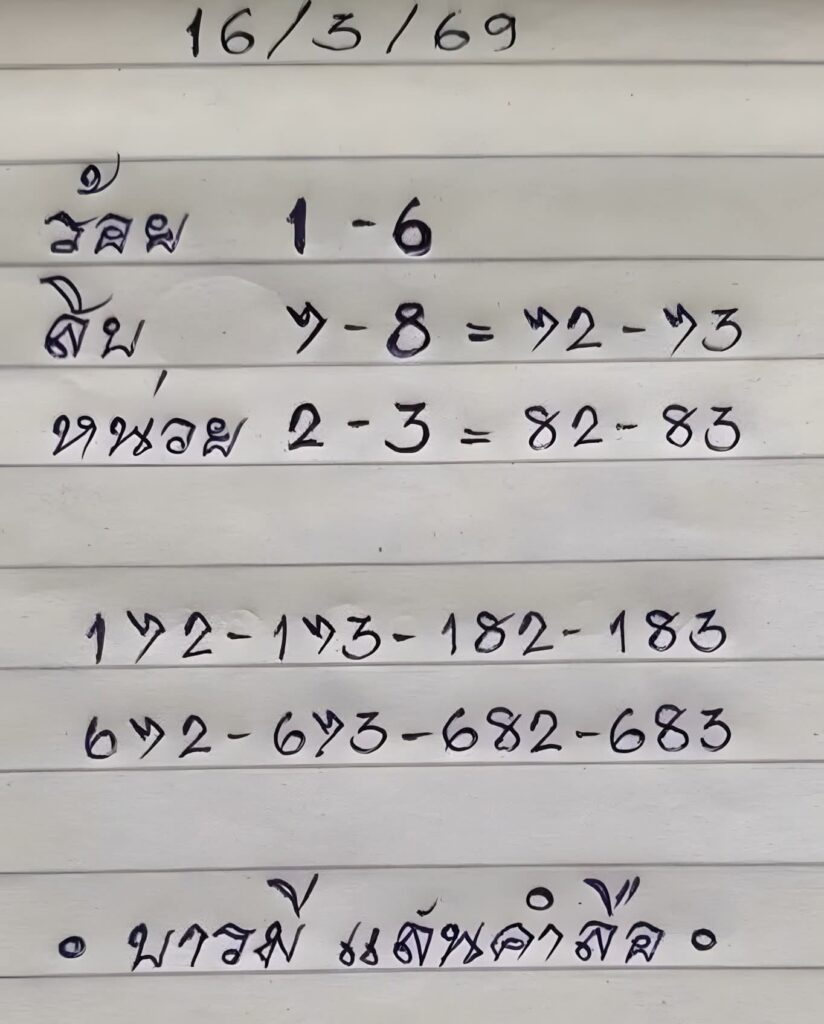 16/3/69
ร้อย 1 - 6
สิบ 7 - 8 = 72 - 73
หน่วย 2 - 3 = 82 - 83
172 - 173 - 182 - 183
672 - 673 - 682 - 683
• บารมี แสนคำลือ •